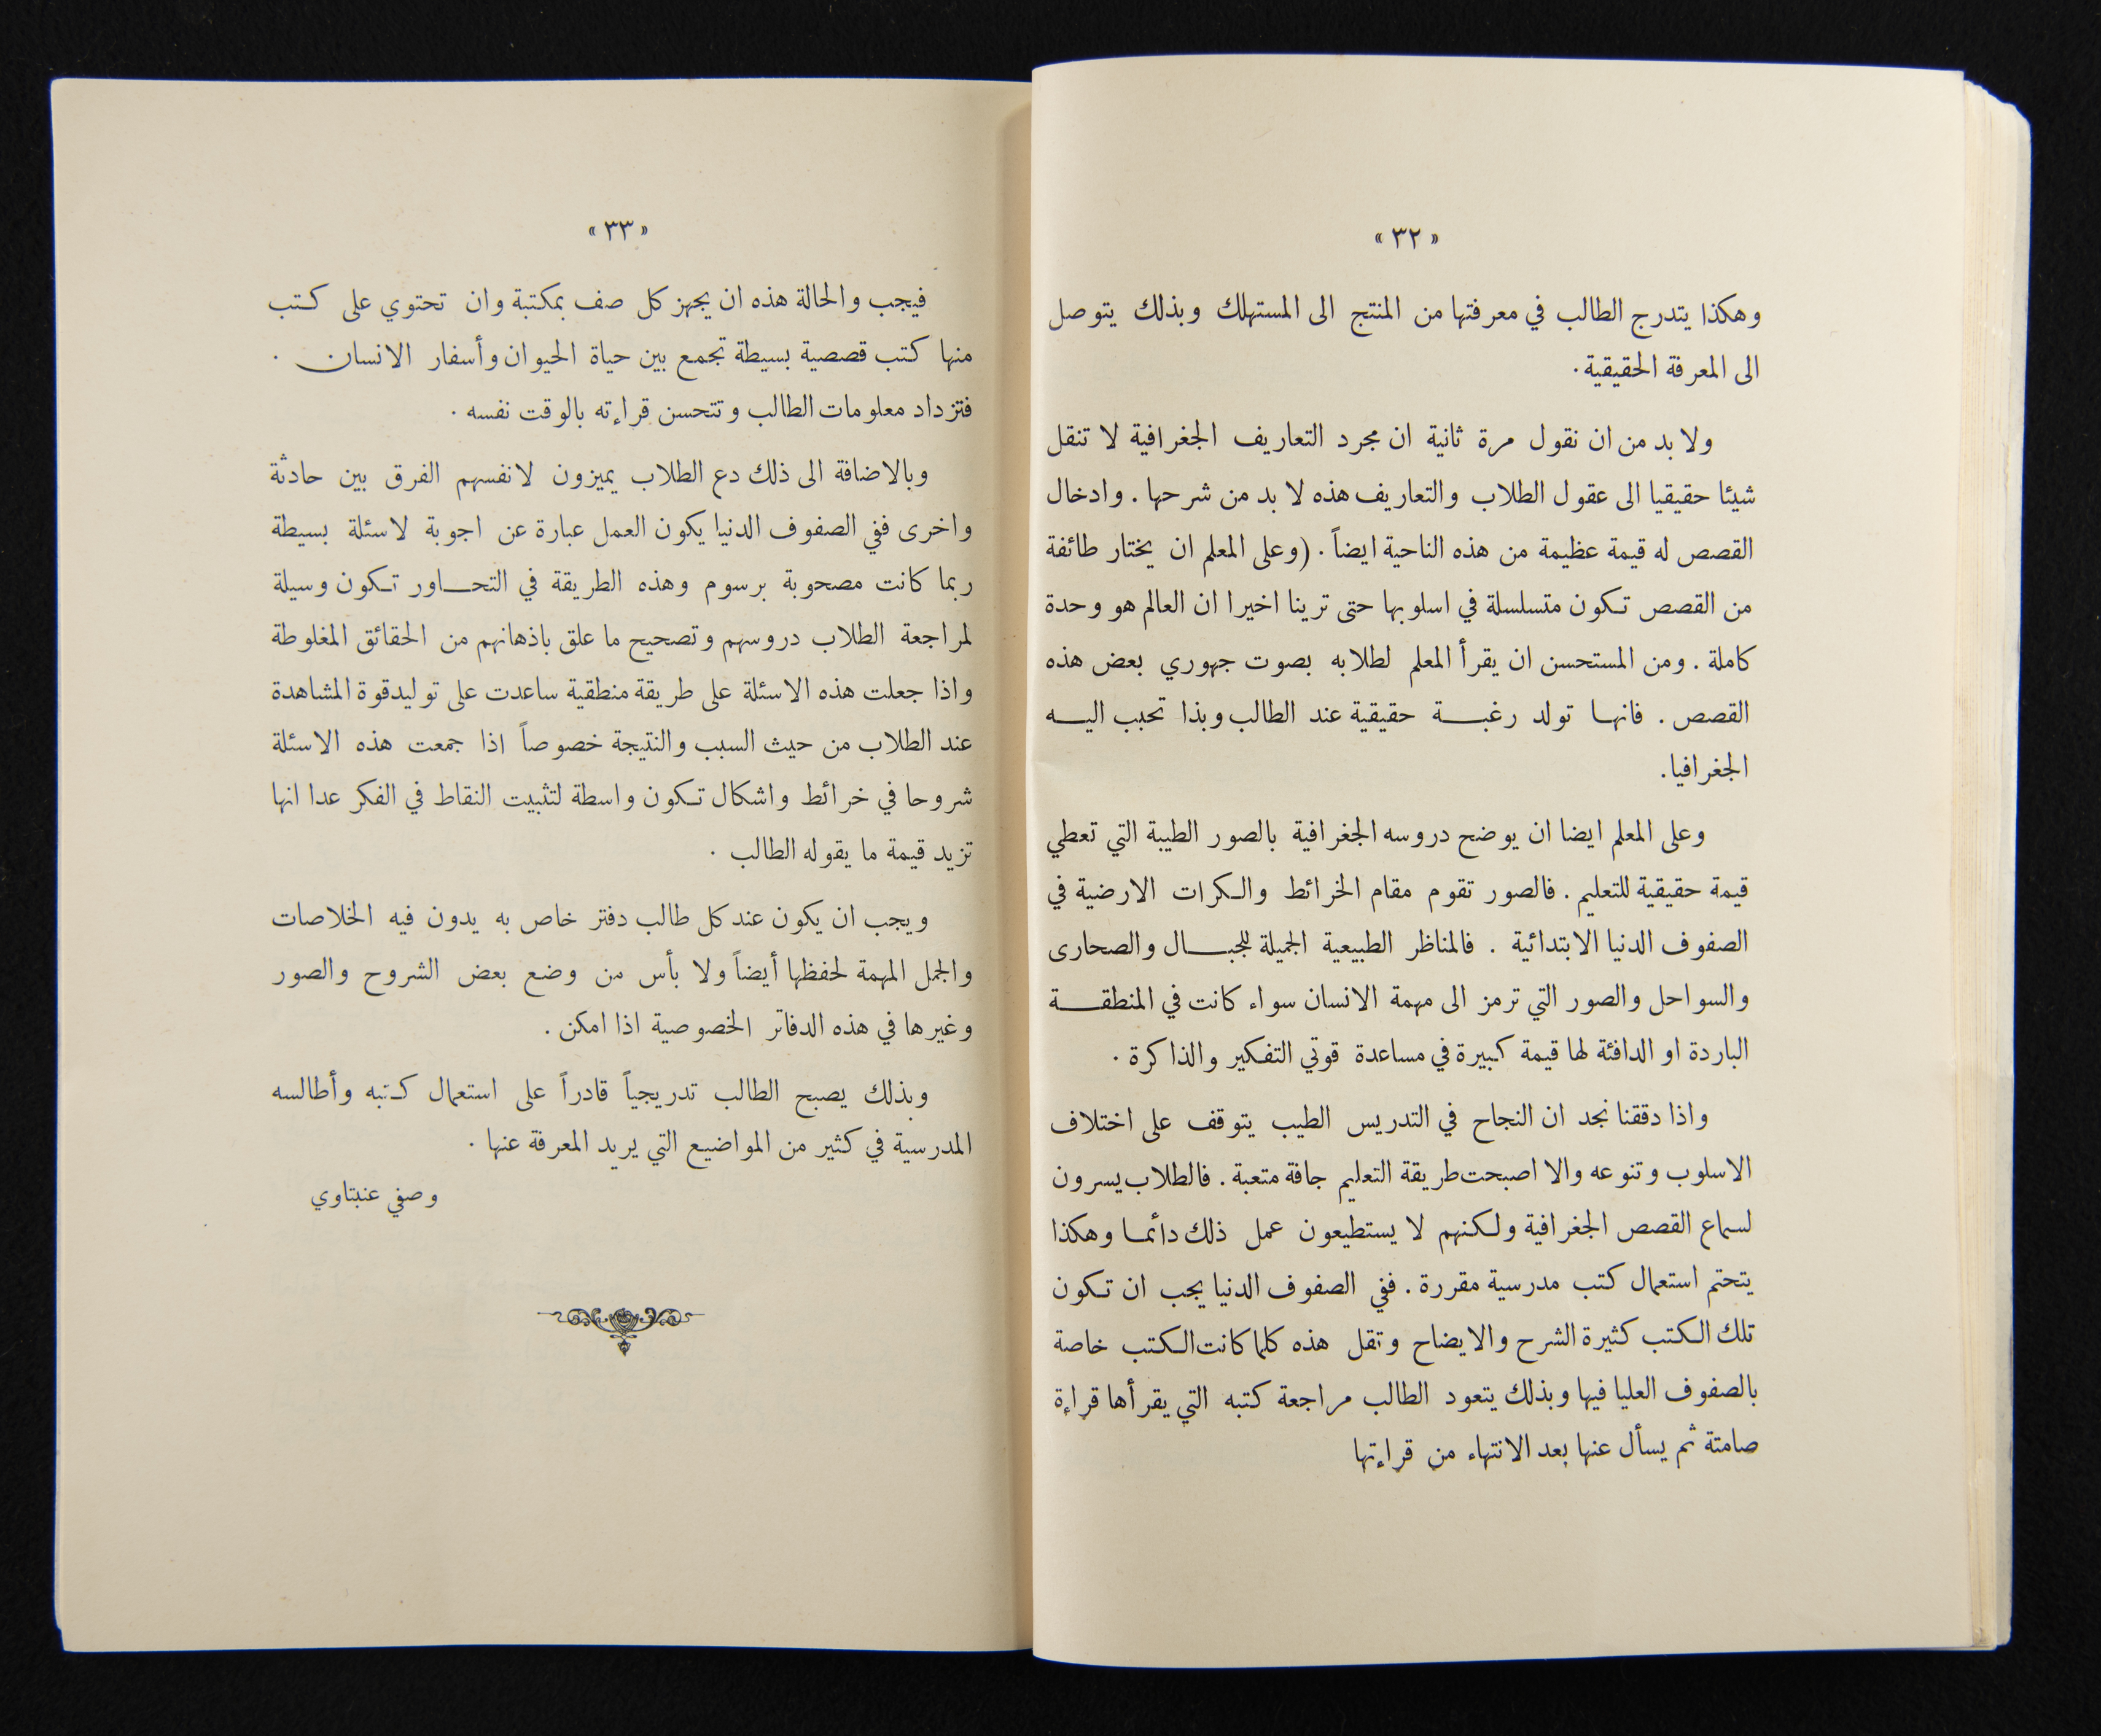 « ٣٢ »
وهكذا يتدرج الطالب في معرفتها من المنتج الى المستهلك وبذلك يتوصل
الى المعرفة الحقيقية .
ولا بد من ان نقول مرة ثانية ان مجرد التعاريف الجغرافية لا تنقل
شيئا حقيقيا الى عقول الطلاب والتعاريف هذه لا بد من شرحها . وادخال
القصص له قيمة عظيمة من هذه الناحية ايضاً . (وعلى المعلم ان يختار طائفة
من القصص تكون متسلسلة في اسلوبها حتى ترينا اخيرا ان العالم هو وحدة
كاملة . ومن المستحسن ان يقرأ المعلم لطلابه بصوت جهوري بعض هذه
القصص . فانها تولد رغبة حقيقية عند الطالب وبذا تحبب اليه
الجغرافيا .
وعلى المعلم ايضا ان يوضح دروسه الجغرافية بالصور الطيبة التي تعطي
قيمة حقيقية للتعليم . فالصور تقوم مقام الخرائط والكرات الارضية في
الصفوف الدنيا الابتدائية . فالمناظر الطبيعية الجميلة للجبال والصحارى
والسواحل والصور التي ترمز الى مهمة الانسان سواء كانت في المنطقة
الباردة او الدافئة لها قيمة كبيرة في مساعدة قوتي التفكير والذاكرة .
واذا دققنا نجد ان النجاح في التدريس الطيب يتوقف على اختلاف
الاسلوب وتنوعه والا اصبحت طريقة التعليم جافة متعبة . فالطلاب يسرون
لسماع القصص الجغرافية ولكنهم لا يستطيعون عمل ذلك دائما وهكذا
يتحتم استعمال كتب مدرسية مقررة . ففي الصفوف الدنيا يجب ان تكون
تلك الكتب كثيرة الشرح والايضاح وتقل هذه كلما كانت الكتب خاصة
بالصفوف العليا فيها وبذلك يتعود الطالب مراجعة كتبه التي يقرأها قراءة
صامتة ثم يسأل عنها بعد الانتهاء من قراءتها
« ٣٣ »
فيجب والحالة هذه ان يجهز كل صف بمكتبة وان تحتوي على كتب
منها كتب قصصية بسيطة تجمع بين حياة الحيوان وأسفار الانسان .
فتزداد معلومات الطالب وتتحسن قراءته بالوقت نفسه .
وبالاضافة الى ذلك دع الطلاب يميزون لانفسهم الفرق بين حادثة
واخرى ففي الصفوف الدنيا يكون العمل عبارة عن اجوبة لاسئلة بسيطة
ربما كانت مصحوبة برسوم وهذه الطريقة في التحاور تكون وسيلة
لمراجعة الطلاب دروسهم وتصحيح ما علق باذهانهم من الحقائق المغلوطة
واذا جعلت هذه الاسئلة على طريقة منطقية ساعدت على توليد قوة المشاهدة
عند الطلاب من حيث السبب والنتيجة خصوصاً اذا جمعت هذه الاسئلة
شروحا في خرائط واشكال تكون واسطة لتثبيت النقاط في الفكر عدا انها
تزيد قيمة ما يقوله الطالب .
ويجب ان يكون عند كل طالب دفتر خاص به يدون فيه الخلاصات
والجمل المهمة لحفظها أيضاً ولا بأس من وضع بعض الشروح والصور
وغيرها في هذه الدفاتر الخصوصية اذا امكن .
وبذلك يصبح الطالب تدريجياً قادراً على استعمال كتبه وأطالسه
المدرسية في كثير من المواضيع التي يريد المعرفة عنها .
وصفي عنبتاوي